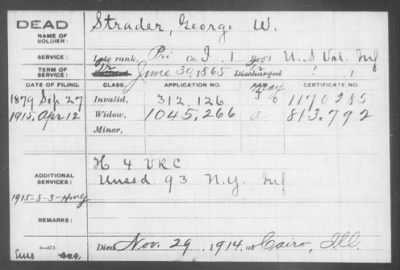 DEAD
NAME OF SOLDIER: Strader, George W.
Late rank, Pri Co. I, 1 Regt U.S. Vol. Inf
TERM OF SERVICE: June 30, 1865 Discharged
DATE OF FILING. CLASS. APPLICATION NO. CERTIFICATE NO.
1879 Sep. 27 Invalid, 312.126 1170285
1915, Apr. 12 Widow, 1045,266 a 813.792
Minor,
ADDITIONAL SERVICES: H 4 VRC
Unasd 93 N.Y. Inf
REMARKS:
Died Nov. 29, 1914, at Cairo, Ill.